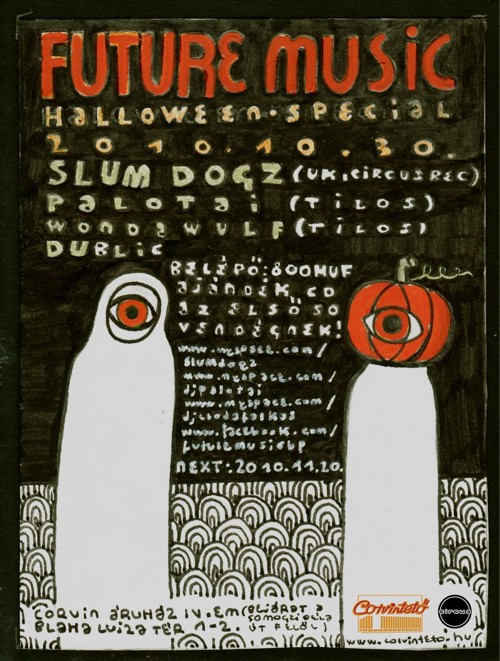 FUTURE MUSIC
HALLOWEEN·SPECIAL
2010.10.30.
SLUM DOGZ (UK,CIRCUSREC)
PALOTAI (TILOS)
WONDAWULF (TILOS)
DUBLIC
BELÉPŐ:800HUF
AJÁNDÉK CD
AZ ELSŐ 50
VENDÉGNEK!
www.myspace.com/
slumdogz
www.myspace.com/
djpalotai
www.myspace.com/
www.facebook.com/
futuremusicbp
NEXT:2010.11.20.
CORVIN ÁRUHÁZ IV.EM (BEJÁRAT A
SOMOGYI BÉLA
BLAHA LUJZA TÉR 1-2. ÚT FELŐL)
Corvintető
www.corvinteto.hu